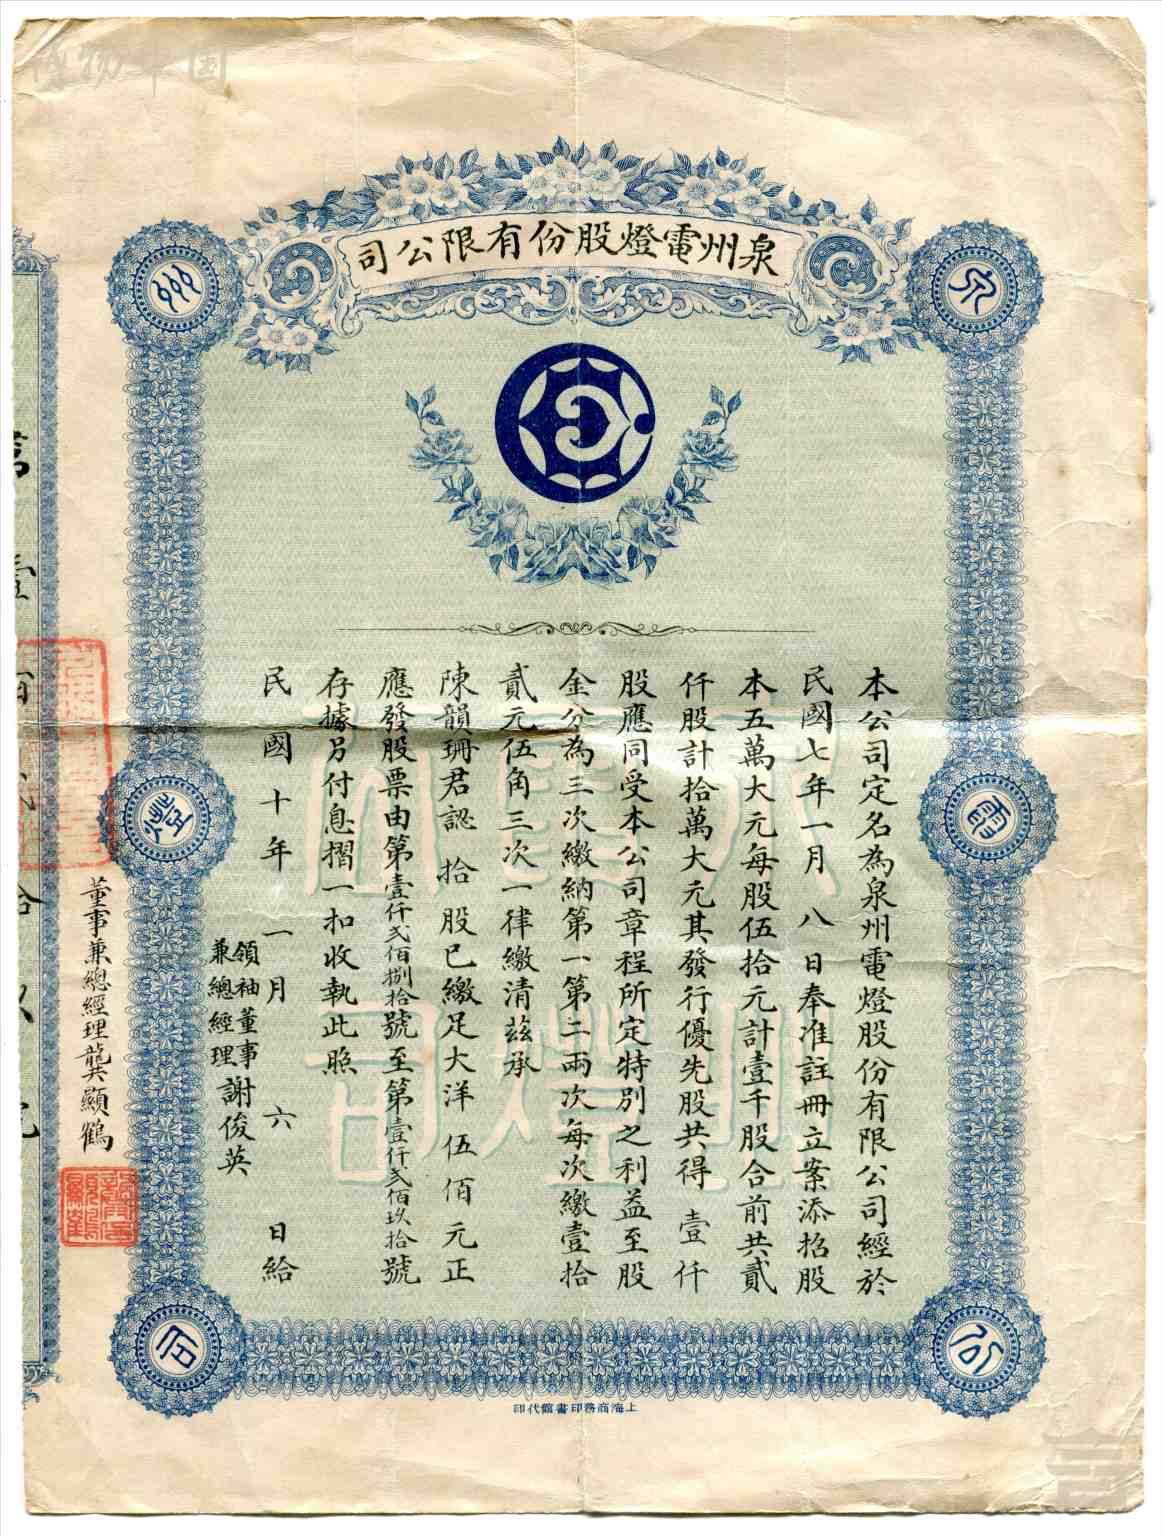 泉州電燈股份有限公司
本公司定名為泉州電燈股份有限公司經於
民國七年一月八日奉准註冊立案添招股
本五萬大元每股伍拾元計壹千股合前共貳
仟股計拾萬大元其發行優先股共得壹仟
股應同受本公司章程所定特別之利益至股
金分為三次繳納第一第二兩次每次繳壹拾
貳元伍角三次一律繳清茲承
陳韻珊君認拾股已繳足大洋伍佰元正
應發股票由第壹仟貳佰捌拾號至第壹仟貳佰玖拾號
存據另付息摺一扣收執此照
民國十年一月六日給
領袖董事
兼總經理
謝俊英
董事兼總經理龔顯鶴
泉
州
電
燈
公
司
上海商務印書館代印